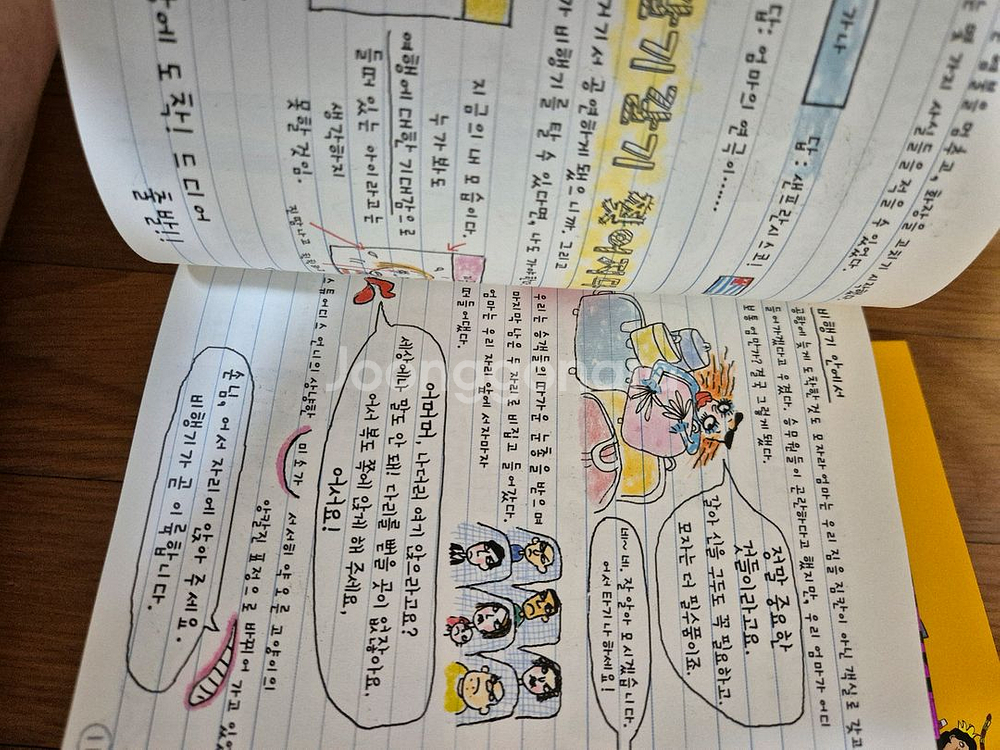 물을 멈추고, 화장을 고치기 시작하
는 몇 가지 사실들을 적을 수 있었다.
가나
답: 샌프란시스코!
답: 엄마의 연극이......
갈기 갈기 찢어지
거기서 공연하게 됐으니까. 그리고
가 비행기를 탈 수 있다면, 나도 가야
지금의 내 모습이다.
누가 봐도
여행에 대한 기대감으로
들떠 있는 아이라고는
생각하지
못할 것임.
항에 도착! 드디어
출발!!
비행기 안에서
공항에 늦게 도착한 것도 모자라 엄마는 우리 짐을 짐칸이 아닌 객실로 갖고
들어가겠다고 우겼다. 승무원들이 곤란하다고 했지만, 우리 엄마가 어디
보통 엄만가? 결국 그렇게 됐다.
정말 중요한
것들이라고요.
갈아 신을 구두도 꼭 필요하고,
모자는 더 필수품이죠.
네~ 네, 잘 알아 모시겠습니다.
어서 타기나 하세요!
우리는 승객들의 따가운 눈총을 받으며
마지막 남은 두 자리로 비집고 들어갔다.
엄마는 우리 자리 앞에 서자마자
떠들어댔다.
어머머, 나더러 여기 앉으라고요?
세상에나, 말도 안 돼! 다리를 뻗을 곳이 없잖아요.
어서 복도 쪽에 앉게 해 주세요,
어서요!
스튜어디스 언니의 상냥한
미소가
서서히 약 오른 고양이의
앙칼진 표정으로 바뀌어 가고 있
손님, 어서 자리에 앉아 주세요.
비행기가 곧 이륙합니다.
Joonggonara